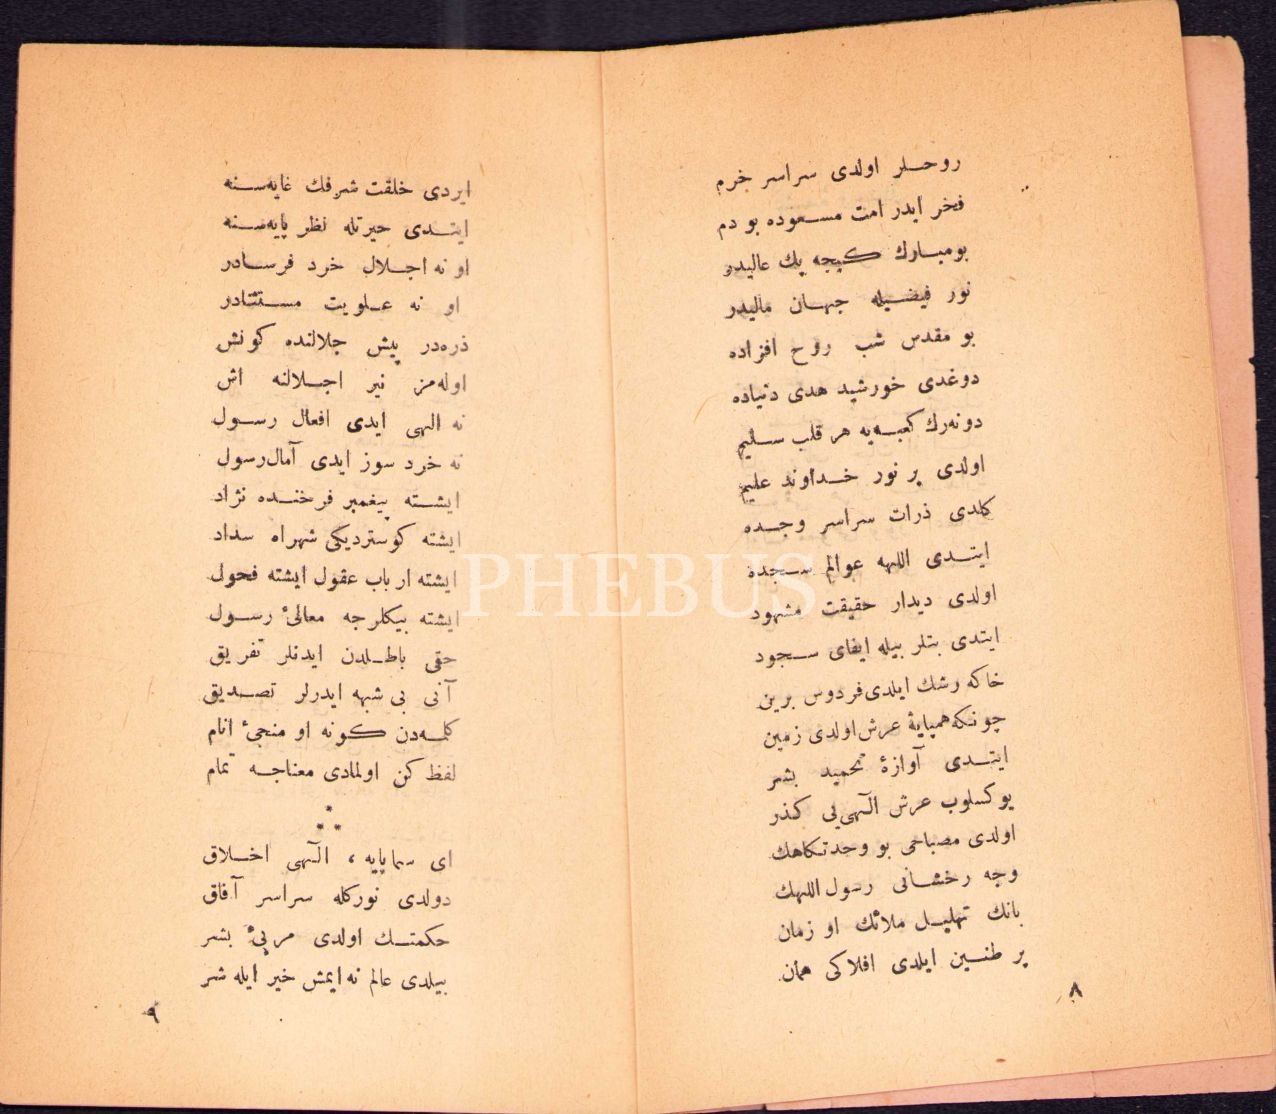 روحلر اولدى سراسر خرم
فخر ايدر امت مسعوده بو دم
بو مبارك كيجه پك عاليدر
نور فيضيله جهان ماليدر
بو مقدس شب روح افزاده
دوغدى خورشيد هدى دنياده
دونه‌رك كعبه‌يه هر قلب سليم
اولدى پر نور خداوند عليم
كلدى ذرات سراسر وجده
ايتدى اللهه عوالم سجده
اولدى ديدار حقيقت مشهود
ايتدى بتلر بيله ايفاى سجود
خاكه رشك ايلدى فردوس برين
چونكه همپايۀ عرش اولدى زمين
ايتدى آوازۀ تحميد بشر
يوكسلوب عرش الٓهى‌يى كذر
اولدى مصباحى بو وحدتكاهك
وجه رخشانى رسول اللهك
بانك تهليل ملائك او زمان
پر طنين ايلدى افلاكى همان
٨
ايردى خلقت شرفك غايه‌سنه
ايتدى حيرتله نظر پايه‌سنه
او نه اجلال خرد فرسادر
او نه علويت مستثنادر
ذره‌در پيش جلالنده كونش
اوله‌مز نير اجلالنه اش
نه الهى ايدى افعال رسول
نه خرد سوز ايدى آمال رسول
ايشته پيغمبر فرخنده نژاد
ايشته كوسترديكى شهراه سداد
ايشته ارباب عقول ايشته فحول
ايشته بيكلرجه معالئ رسول
حقى باطلدن ايدنلر تفريق
آنى بى شبهه ايدرلر تصديق
كلمه‌دن كونه او منجئ انام
لفظ كن اولمادى معناجه تمام
*
* *
اى سما پايه ، الٓهى اخلاق
دولدى نوركله سراسر آفاق
حكمتك اولدى مربئ بشر
بيلدى عالم نه ايمش خير ايله شر
٩
PHEBUS